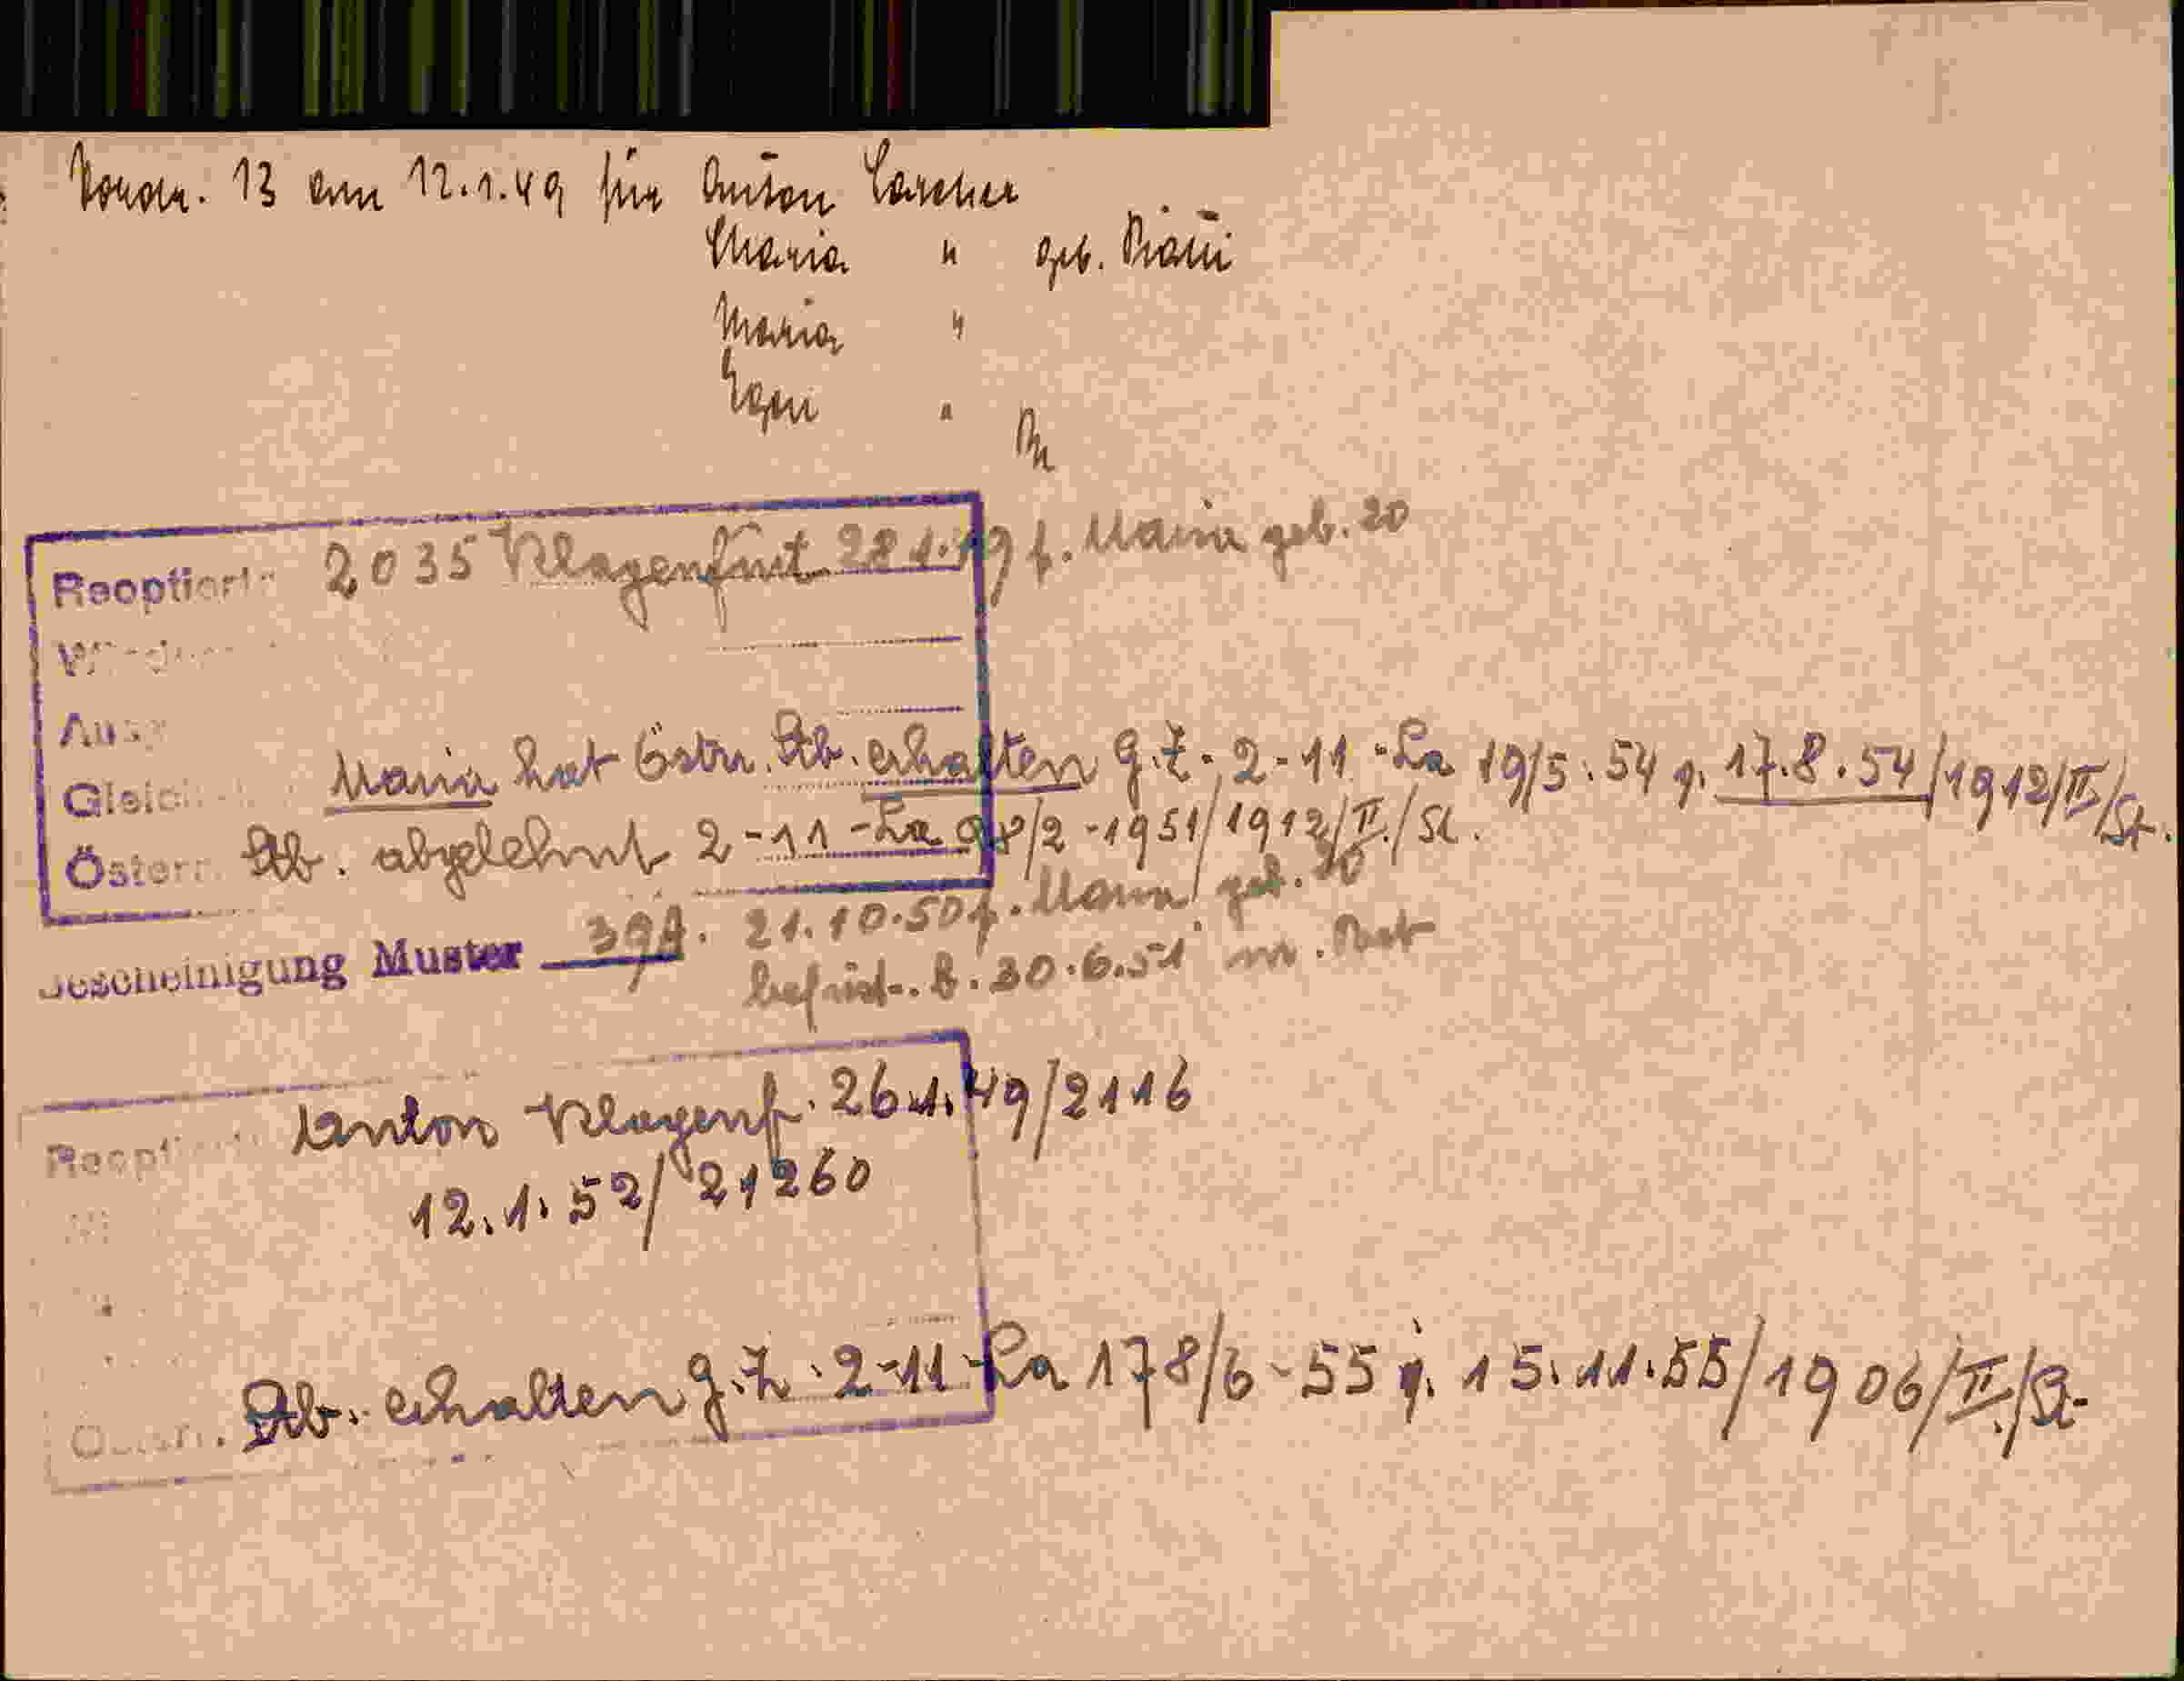 Vordr. 13 am 12.1.49 für Anton Larcher
Maria " geb. Piatti
Maria "
Egon "
Reoptiert 2035 Klagenfurt 28.1.49 f. Maria geb. 20
Maria hat östr. Stb. erhalten g.Z. 2-11-La 19/5.54 v. 17.8.54/1912/II/St.
Österr. Stb. abgelehnt 2-11-La 98/2-1951/1912/II./St.
Bescheinigung Muster 39A. 21.10.50 f. Maria geb. 20
befrist. b. 30.6.51
Anton Klagenf. 26.1.49/2116
12.1.52/21260
Stb. erhalten g.Z. 2-11-La 178/6-55 v. 15.11.55/1906/II./St.